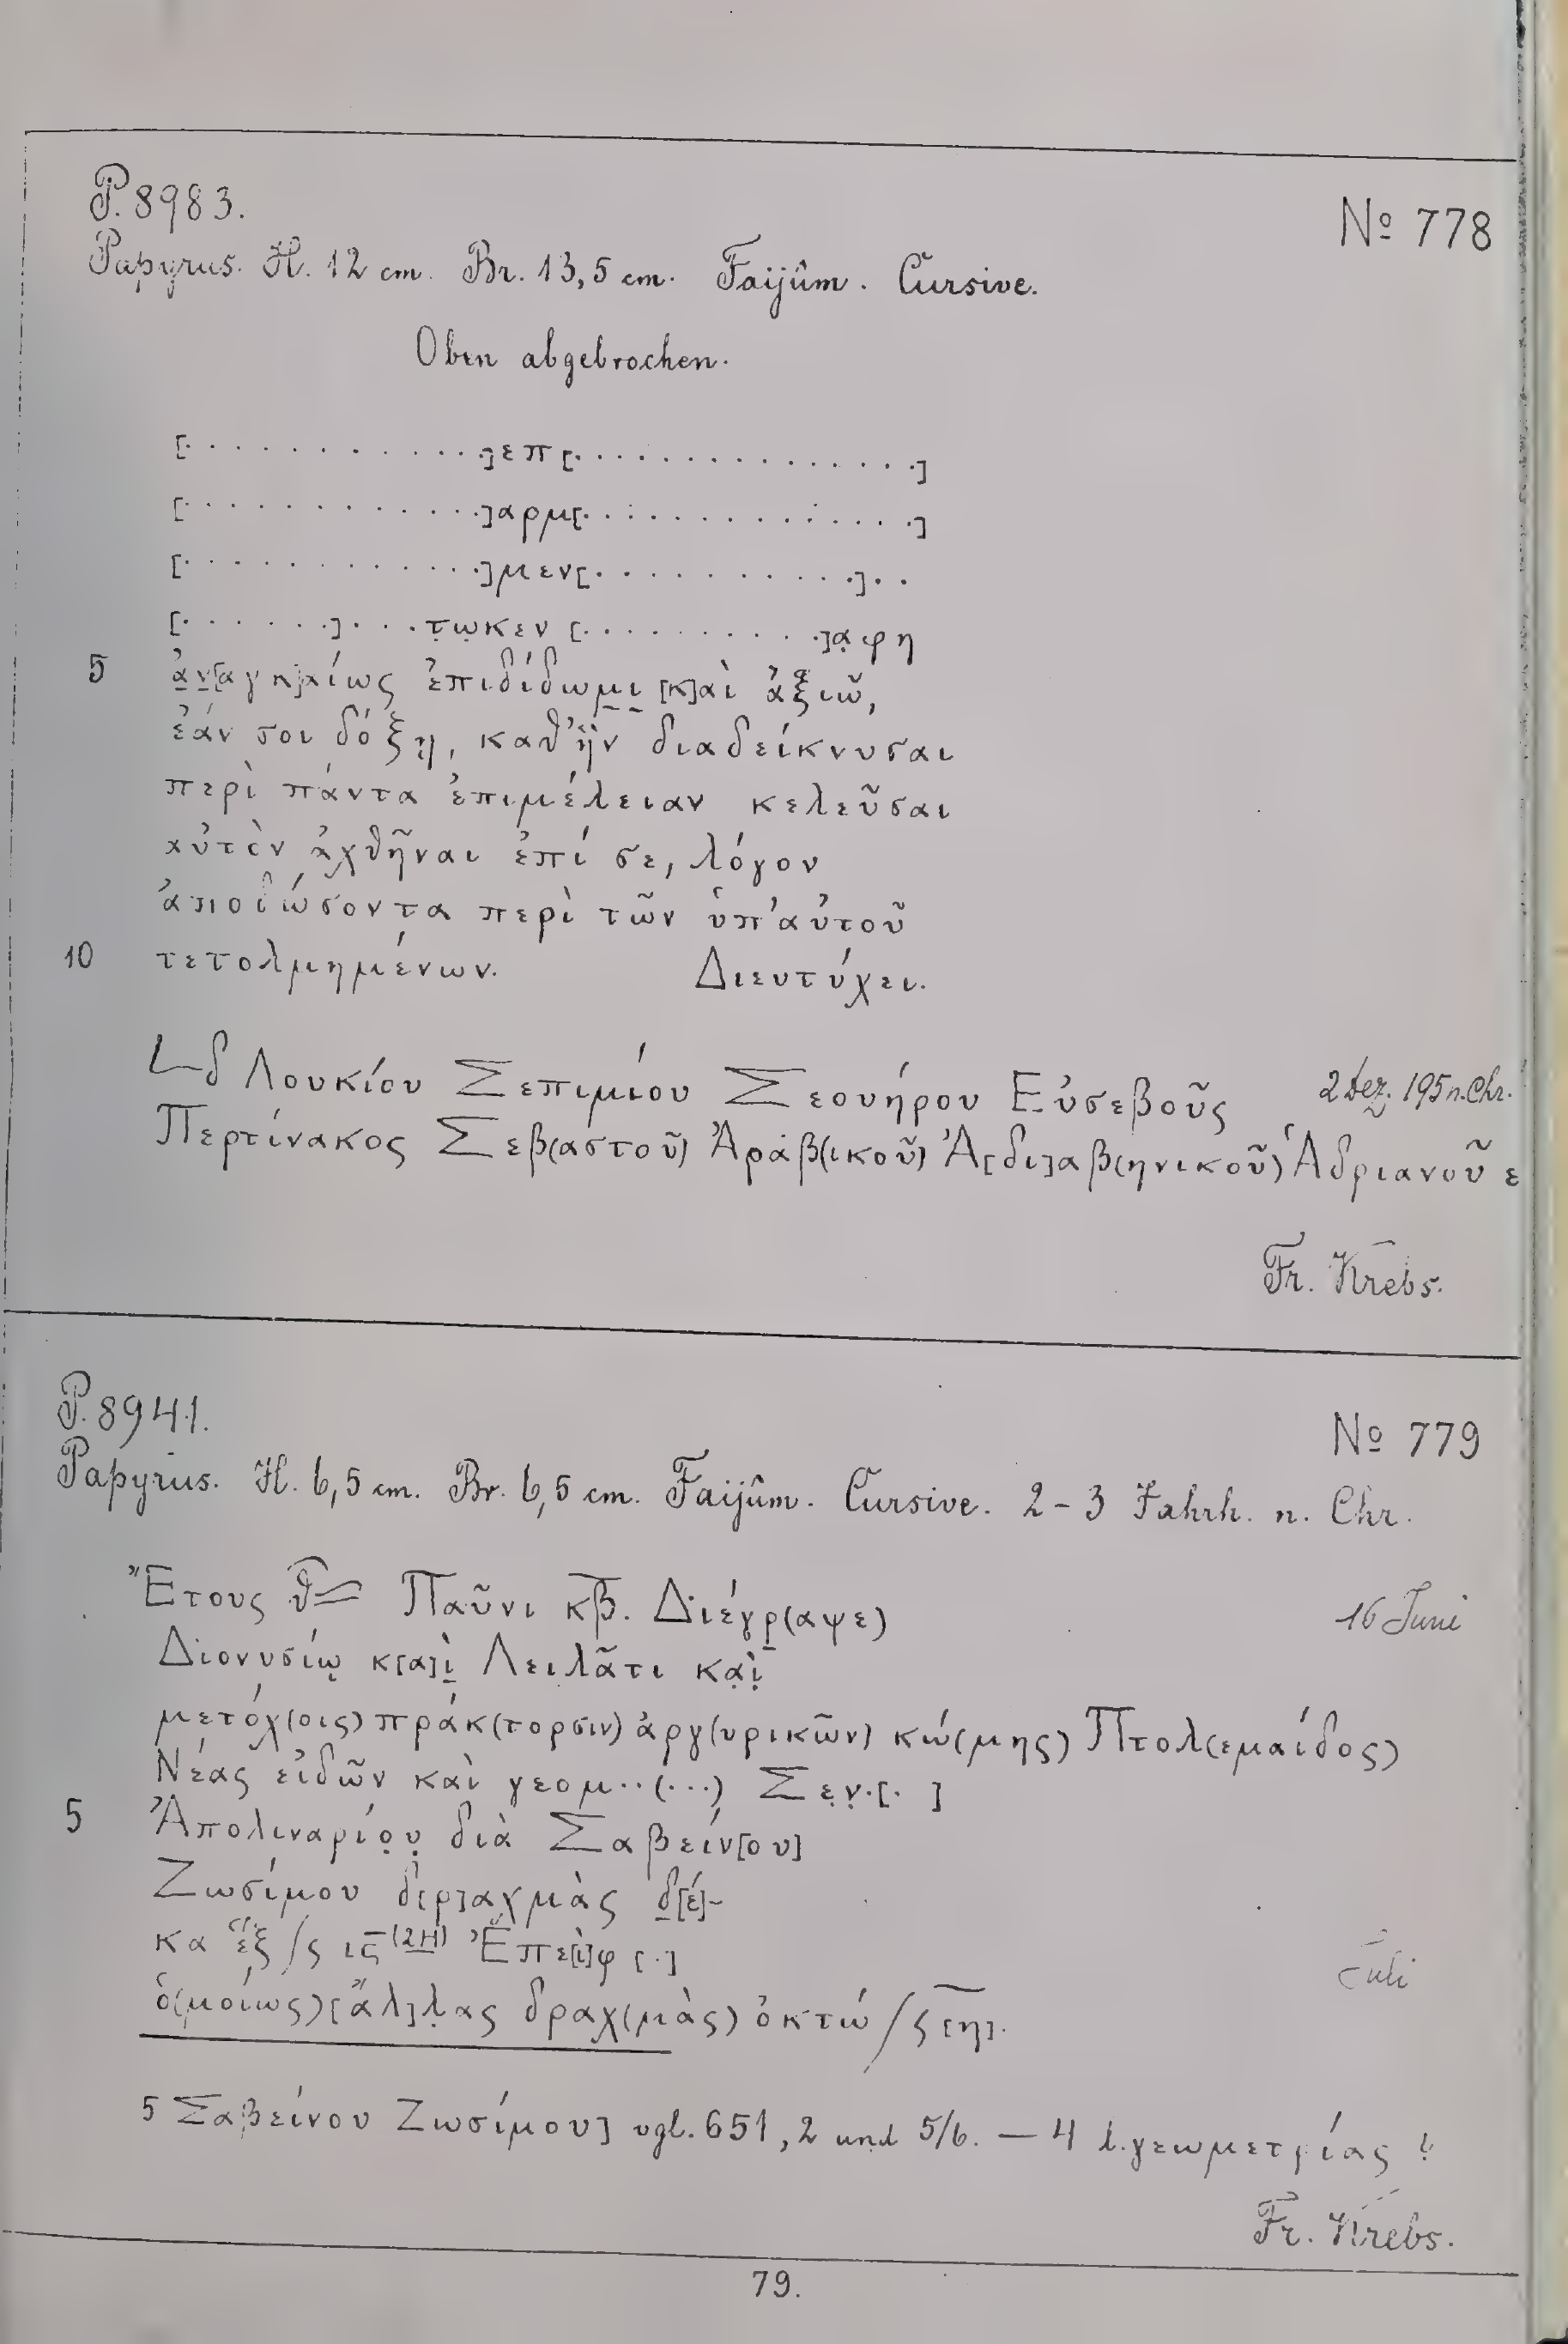 P. 8983.
№ 778
Papyrus. H. 12 cm. Br. 13,5 cm. Faijûm. Cursive.
Oben abgebrochen.
[· · · · · · · · · · · ·]επ[· · · · · · · · · · · · · ·]
[· · · · · · · · · · · ·]αρμ[· · · · · · · · · · · · · ·]
[· · · · · · · · · · · ·]μεν[· · · · · · · · · · ·]· ·
[· · · · · · ·]· · ·τ̣ω̣κεν [· · · · · · · · · ·]α̣φη
5 ἀ̣ν̣[αγκ]αίως ἐπιδίδωμ̣ι̣ [κ]αὶ ἀξιῶ,
ἐάν σοι δόξῃ, καθ' ἣν διαδείκνυσαι
περὶ πάντα ἐπιμέλειαν κελεῦσαι
αὐτὸν ἀχθῆναι ἐπί σε, λόγον
ἀποδώσοντα περὶ τῶν ὑπ' αὐτοῦ
10 τετολμημένων. Διευτύχει.
𐅹δ Λουκίου Σεπιμίου Σεουήρου Εὐσεβοῦς 2 Dez. 195 n. Chr.
Περτίνακος Σεβ(αστοῦ) Ἀραβ(ικοῦ) Ἀ[δι]αβ(ηνικοῦ) Ἁδριανοῦ ε
Fr. Krebs.
P. 8941.
№ 779
Papyrus. H. 6,5 cm. Br. 6,5 cm. Faijûm. Cursive. 2-3 Jahrh. n. Chr.
Ἔτους θ̅ Παῦνι κ̅β̅. Διέγρ̣(αψε) 16 Juni
Διονυσίῳ κ[α]ὶ̣ Λειλᾶτι κα̣ὶ̣
μετόχ(οις) πράκ(τορσιν) ἀργ(υρικῶν) κώ(μης) Πτολ(εμαίδος)
Νέας εἰδῶν καὶ γεομ··(···) Σε̣ν̣·[· ]
5 Ἀπολιναρίο̣υ̣ διὰ Σαβείν[ου]
Ζωσίμου δ[ρ]αχμὰς δ̣[έ]-
κα ἕξ /ς ις̅ (2H) Ἐπε[ὶ]φ [·] Juli
ὁ(μοίως) [ἄλ]λ̣ας δραχ(μὰς) ὀκτώ /ς [η].
5 Σαβείνου Ζωσίμου] vgl. 651, 2 und 5/6. — 4 l. γεωμετρίας ?
Fr. Krebs.
79.